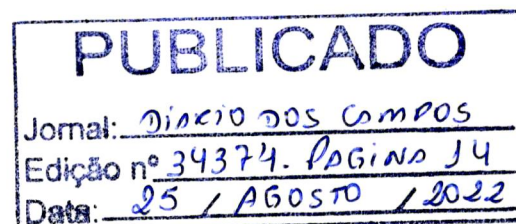 PUBLICADO
Jornal: DIARIO DOS CAMPOS
Edição nº 34374. PAGINA 14
Data: 25 / AGOSTO / 2022